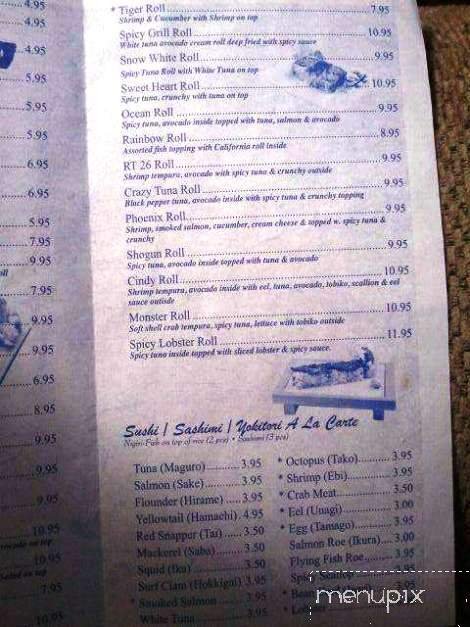 4.95
4.95
5.95
5.95
5.95
6.95
6.95
5.95
7.95
9.95
7.95
9.95
9.95
6.95
8.95
9.95
9.95
9.95
10.95
10.95
7.95
10.95
* Tiger Roll 7.95
Shrimp & Cucumber with Shrimp on top
Spicy Grill Roll 10.95
White tuna avocado cream roll deep fried with spicy sauce
Snow White Roll 9.95
Spicy Tuna Roll with White Tuna on top
Sweet Heart Roll 10.95
Spicy tuna, crunchy with tuna on top
Ocean Roll 9.95
Spicy tuna, avocado inside topped with tuna, salmon & avocado
Rainbow Roll 8.95
Assorted fish topping with California roll inside
RT 26 Roll 9.95
Shrimp tempura, avocado with spicy tuna & crunchy outside
Crazy Tuna Roll 9.95
Black pepper tuna, avocado inside with spicy tuna & crunchy topping
Phoenix Roll 9.95
Shrimp, smoked salmon, cucumber, cream cheese & topped w. spicy tuna &
crunchy
Shogun Roll 9.95
Spicy tuna, avocado inside topped with tuna & avocado
Cindy Roll 10.95
Shrimp tempura, avocado inside with eel, tuna, avocado, tobiko, scallion & eel
sauce outside
Monster Roll 10.95
Soft shell crab tempura, spicy tuna, lettuce with tobiko outside
Spicy Lobster Roll 11.95
Spicy tuna inside topped with sliced lobster & spicy sauce.
Sushi / Sashimi / Yokitori A La Carte
Nigiri-Fish on top of rice (2 pcs) • Sashimi (3 pcs)
Tuna (Maguro) 3.95
Salmon (Sake) 3.95
Flounder (Hirame) 3.95
Yellowtail (Hamachi) 4.95
Red Snappur (Tai) 3.50
Mackerel (Saba) 3.50
Squid (Ika) 3.50
Surf Clam (Hokkigai) 3.95
* Smoked Salmon 3.95
White Tuna 3.95
* Octopus (Tako) 3.95
* Shrimp (Ebi) 3.95
* Crab Meat 3.50
* Eel (Unagi) 3.00
* Egg (Tamago) 3.95
Salmon Roe (Ikura) 3.00
Flying Fish Roe 3.95
Spicy Scallop 3.95
* Lobster
menupix